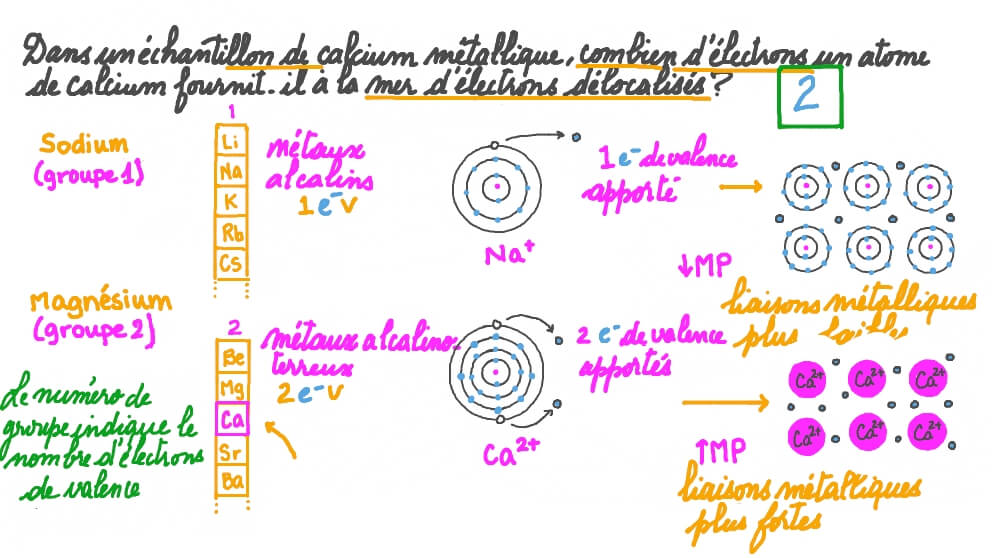 Dans un échantillon de calcium métallique, combien d'électrons un atome
de calcium fournit-il à la mer d'électrons délocalisés ?
2
Sodium
(groupe 1)
1
Li
Na
K
Rb
Cs
métaux
alcalins
1 e⁻ V
Na⁺
1 e⁻ de valence
apporté
↓MP
liaisons métalliques
plus faibles
Magnésium
(groupe 2)
2
Be
Mg
Ca
Sr
Ba
métaux alcalino-
terreux
2 e⁻ V
Ca²⁺
2 e⁻ de valence
apportés
↑MP
Ca²⁺ Ca²⁺ Ca²⁺
Ca²⁺ Ca²⁺ Ca²⁺
liaisons métalliques
plus fortes
Le numéro de
groupe indique le
nombre d'électrons
de valence